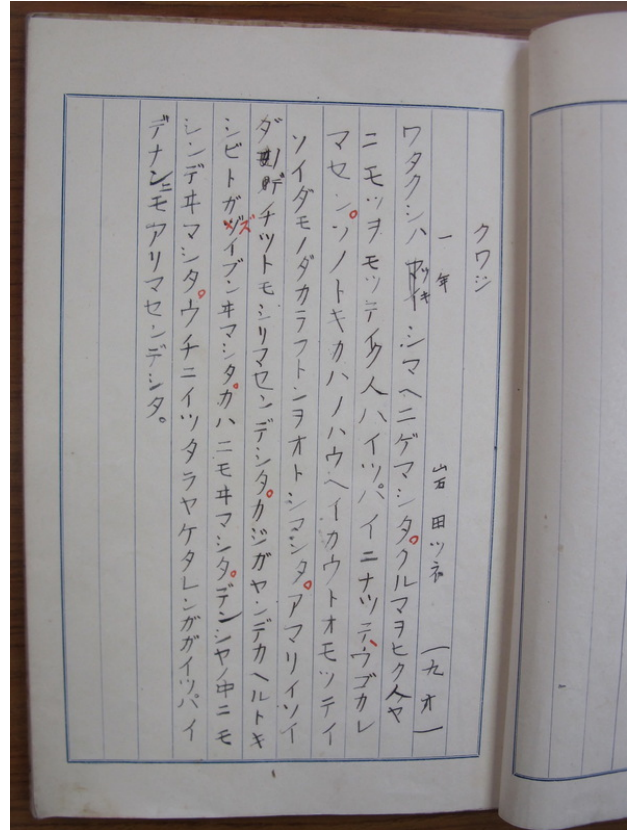 クワジ
一年 岩田ツネ (九才)
ワタクシハツキシマヘニゲマシタ。クルマヲヒク人ヤ
ニモツヲモツテイク人ハイツパイニナツテ、ウゴカレ
マセン。ソノトキカハノハウヘイカウトオモツテイ
ソイダモノダカラフトンヲオトシマシタ。アマリイソイ
ダ時チツトモシリマセンデシタ。カジガヤンデカヘルトキ
シビトガズイブンヰマシタ。カハニモヰマシタ。デンシヤノ中ニモ
シンデヰマシタ。ウチニイツタラヤケタレンガガイツパイ
デナンニモアリマセンデシタ。